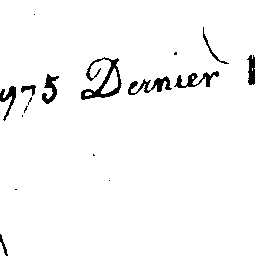 975 Dernier